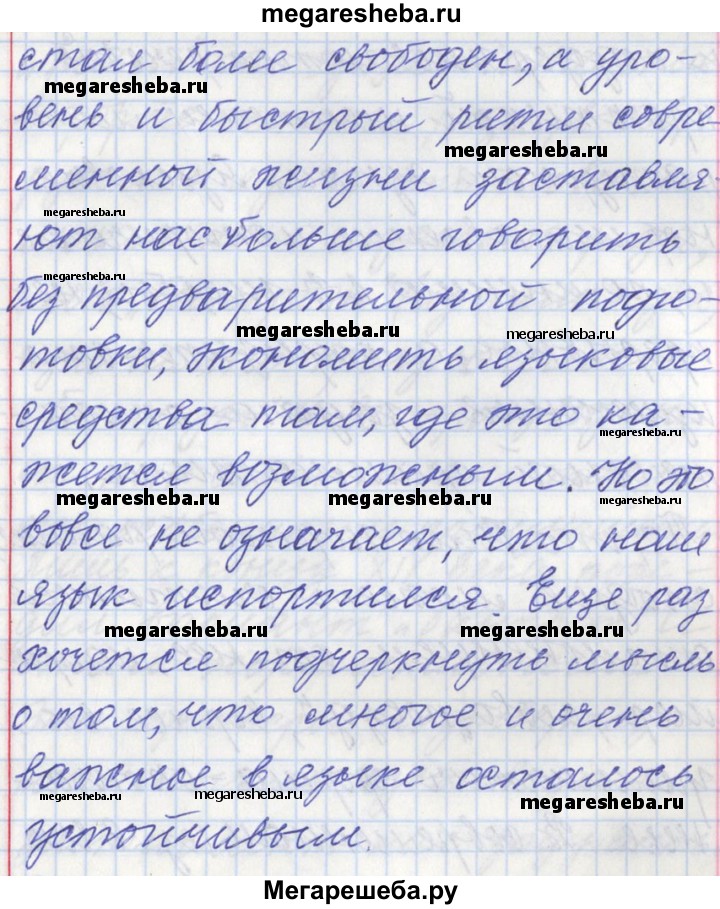 megaresheba.ru
стал более свободен, а уро-
megaresheba.ru megaresheba.ru
вень и быстрый ритм совре-
megaresheba.ru
менной жизни заставля-
megaresheba.ru
ют нас больше говорить
megaresheba.ru
без предварительной подго-
megaresheba.ru megaresheba.ru
товки, экономить языковые
средства там, где это ка-
megaresheba.ru
жется возможным. Но это
megaresheba.ru megaresheba.ru megaresheba.ru
вовсе не означает, что наш
язык испортился. Еще раз
megaresheba.ru megaresheba.ru
хочется подчеркнуть мысль
о том, что многое и очень
важное в языке осталось
megaresheba.ru megaresheba.ru megaresheba.ru
устойчивым.
Мегарешеба.ру